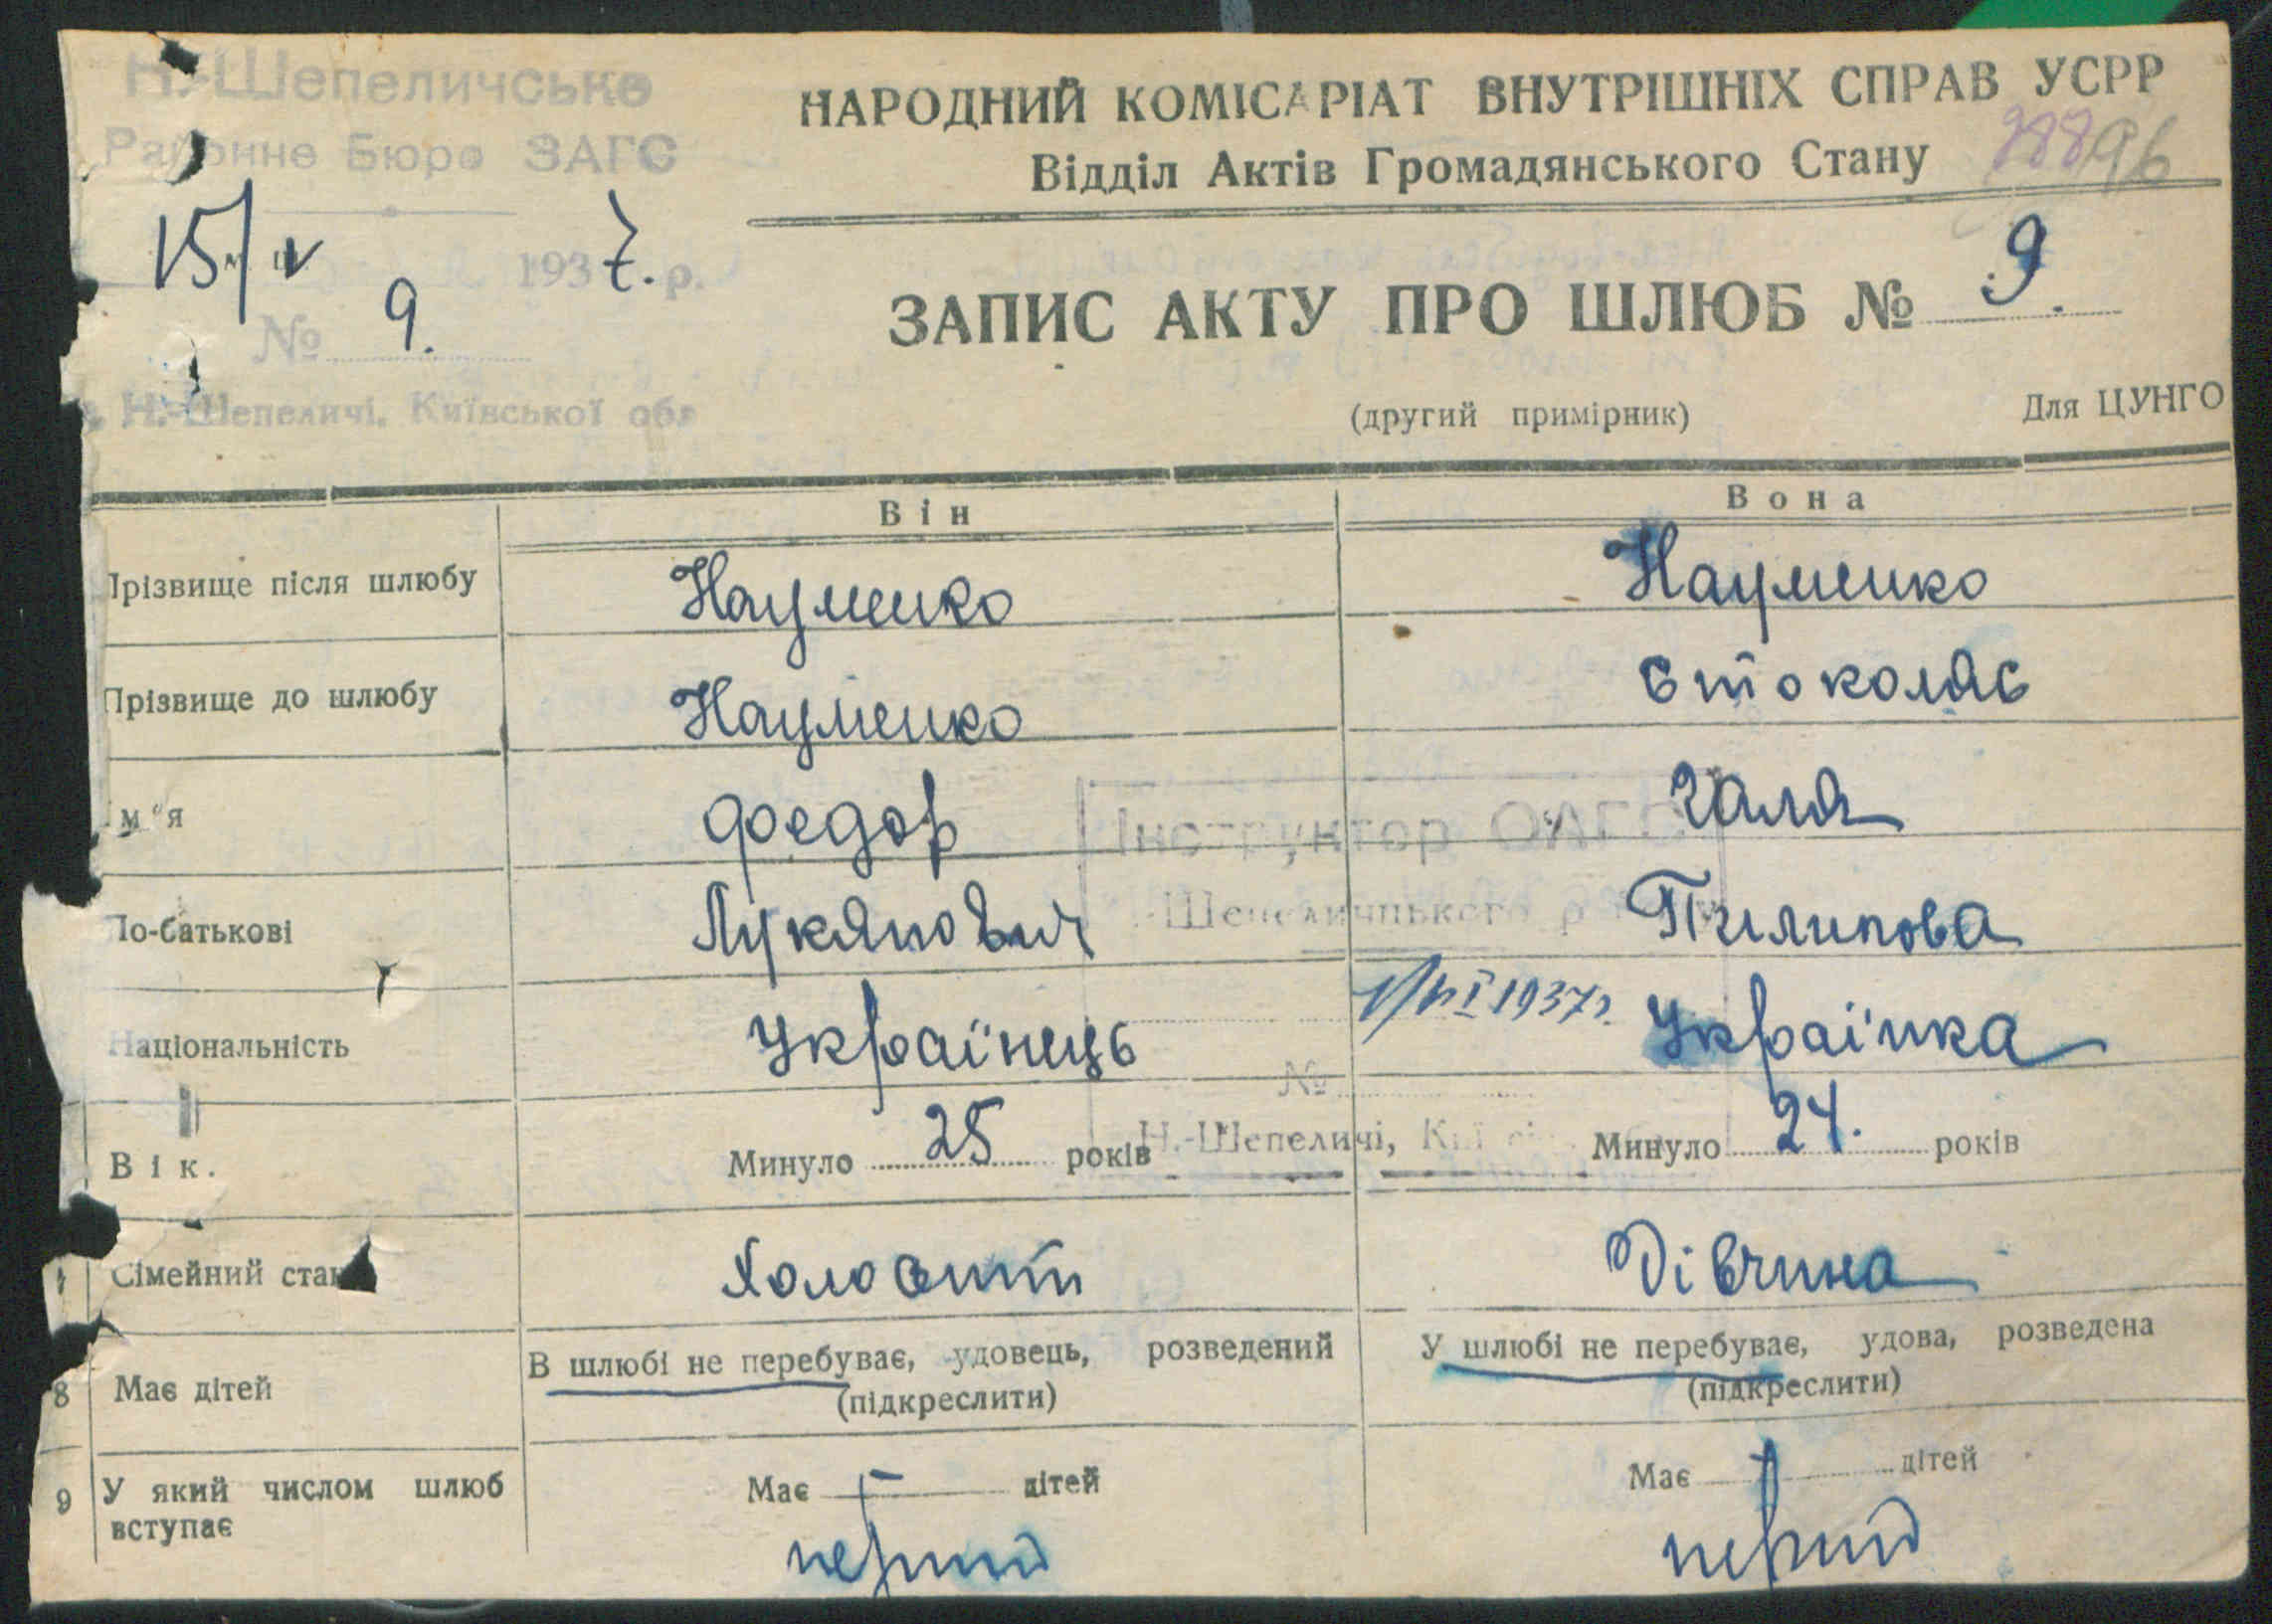 Н.-Шепеличське
Районне Бюро ЗАГС
15/V 1937. р.
№ 9.
Н.-Шепеличі, Київської обл
НАРОДНИЙ КОМІСАРІАТ ВНУТРІШНІХ СПРАВ УСРР
Відділ Актів Громадянського Стану
96
ЗАПИС АКТУ ПРО ШЛЮБ № 9.
(другий примірник) Для ЦУНГО
Він Вона
Прізвище після шлюбу Науменко Науменко
Прізвище до шлюбу Науменко Стоколяс
Ім'я Федор Галя
Інструктор ОАГС
По-батькові Лукянович Пилипова
Шепеличицького
Національність Українець Українка
1937р.
№
Вік. Минуло 25 років Минуло 24. років
Н.-Шепеличі,
Сімейний стан Холостий Дівчина
В шлюбі не перебуває, удовець, розведений У шлюбі не перебуває, удова, розведена
(підкреслити) (підкреслити)
8 Має дітей
Має — дітей Має дітей
9 У який числом шлюб
вступає
перший перший